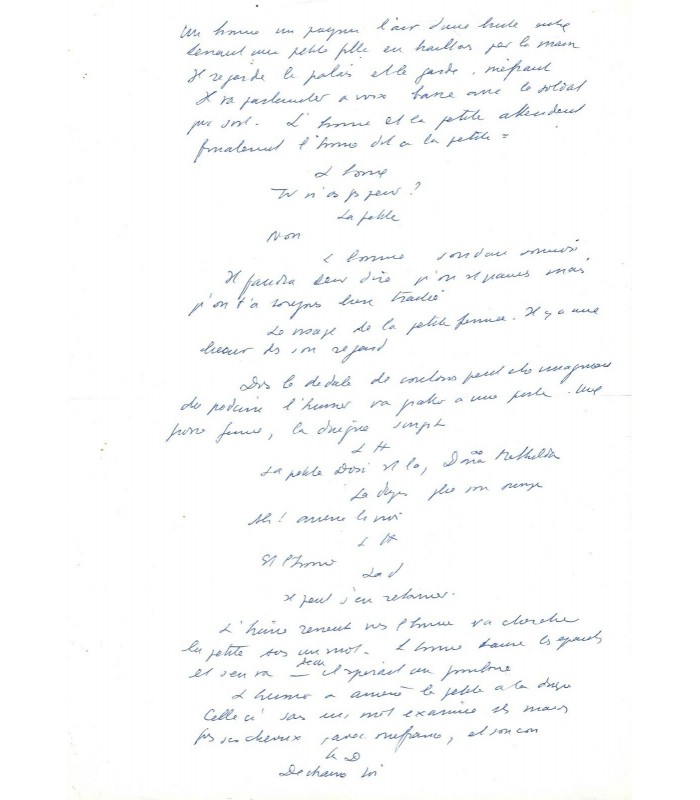 Un homme un paysan l'air d'une brute
tenant une petite fille en haillons par la main
Il regarde le palais et le garde. méfiant
Il va parlementer a voix basse avec le soldat
qui sort. L'homme et la petite attendent
finalement l'homme dit a la petite =
L'homme
Tu n'as pas peur ?
La petite
Non
L'homme soudain
Il faudra leur dire qu'on est pauvres mais
qu'on t'a toujours bien traitée
Le visage de la petite femme. Il y a une
lueur ds son regard
Ds le dedale de couloirs
l'huissier va parler a une porte. une
grosse femme, la duègne surgit
L H
La petite est la, Doña Mathilda
La
Ah ! amene la moi
L H
Et l'homme
La d
Il peut s'en retourner.
L'huissier revient vers l'homme va chercher
la petite sans un mot. L'homme hausse les epaules
et s'en va – il esperait un pourboire
L'huissier a amené la petite a la duègne
Celle ci sans un mot examine ses mains
ses cheveux, avec, et son cou
La D
Dechausse toi